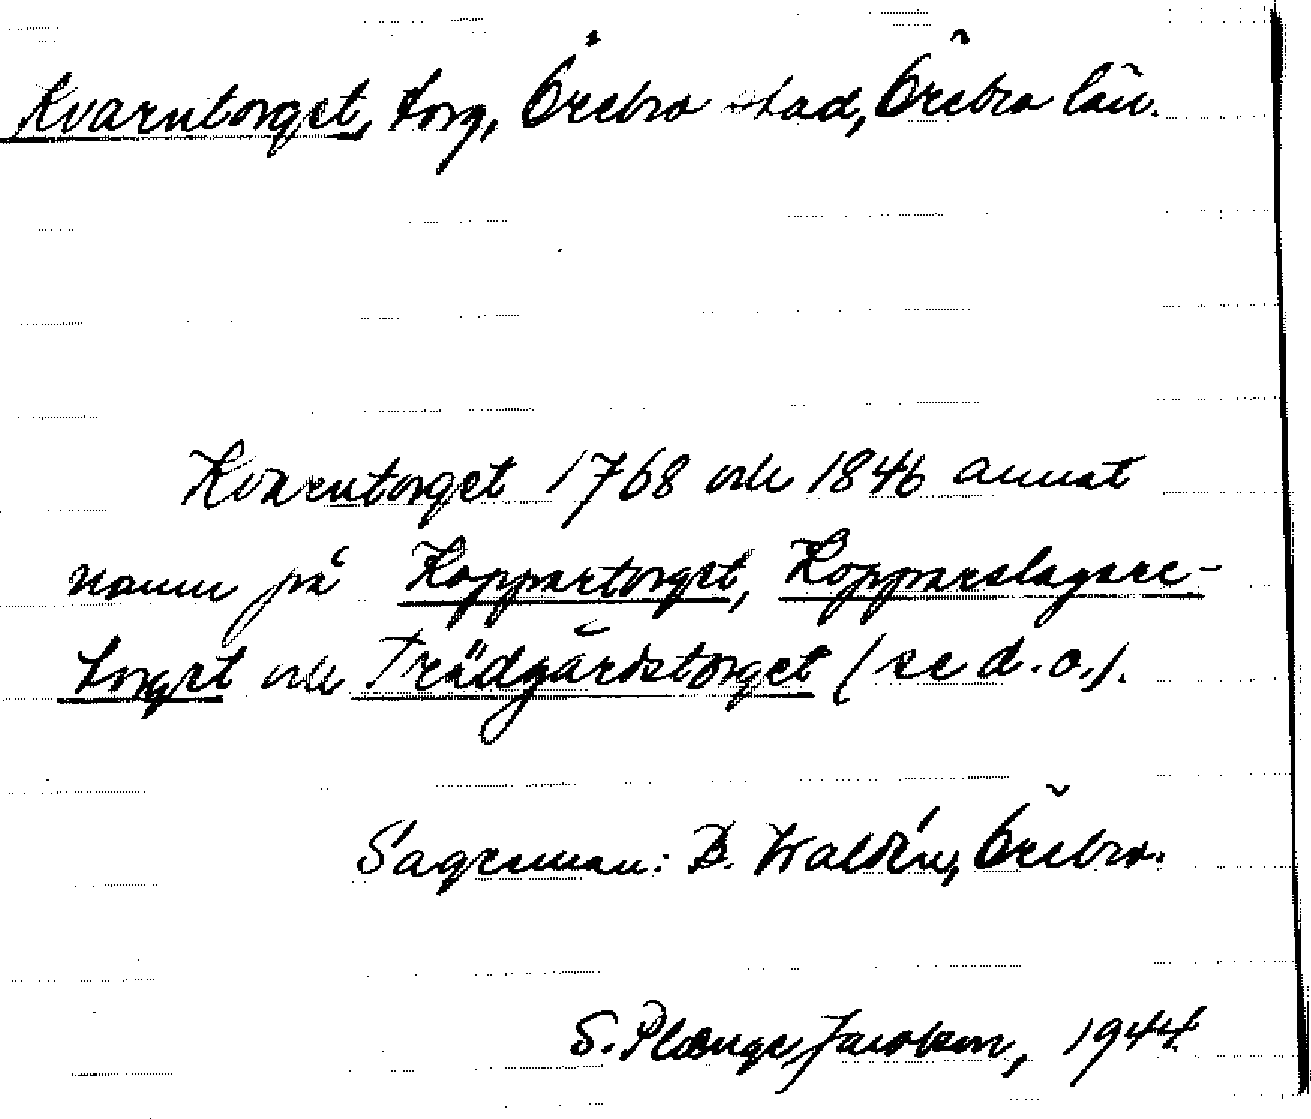 Kvarntorget, torg, Örebro stad, Örebro län.
Kvarntorget 1768 och 1846 annat
namn på Koppartorget, Kopparslagare-
torget och Trädgårdstorget (se d.o.).
Sagesman: B. Waldén, Örebro.
S. Plænge Jacobson, 1944